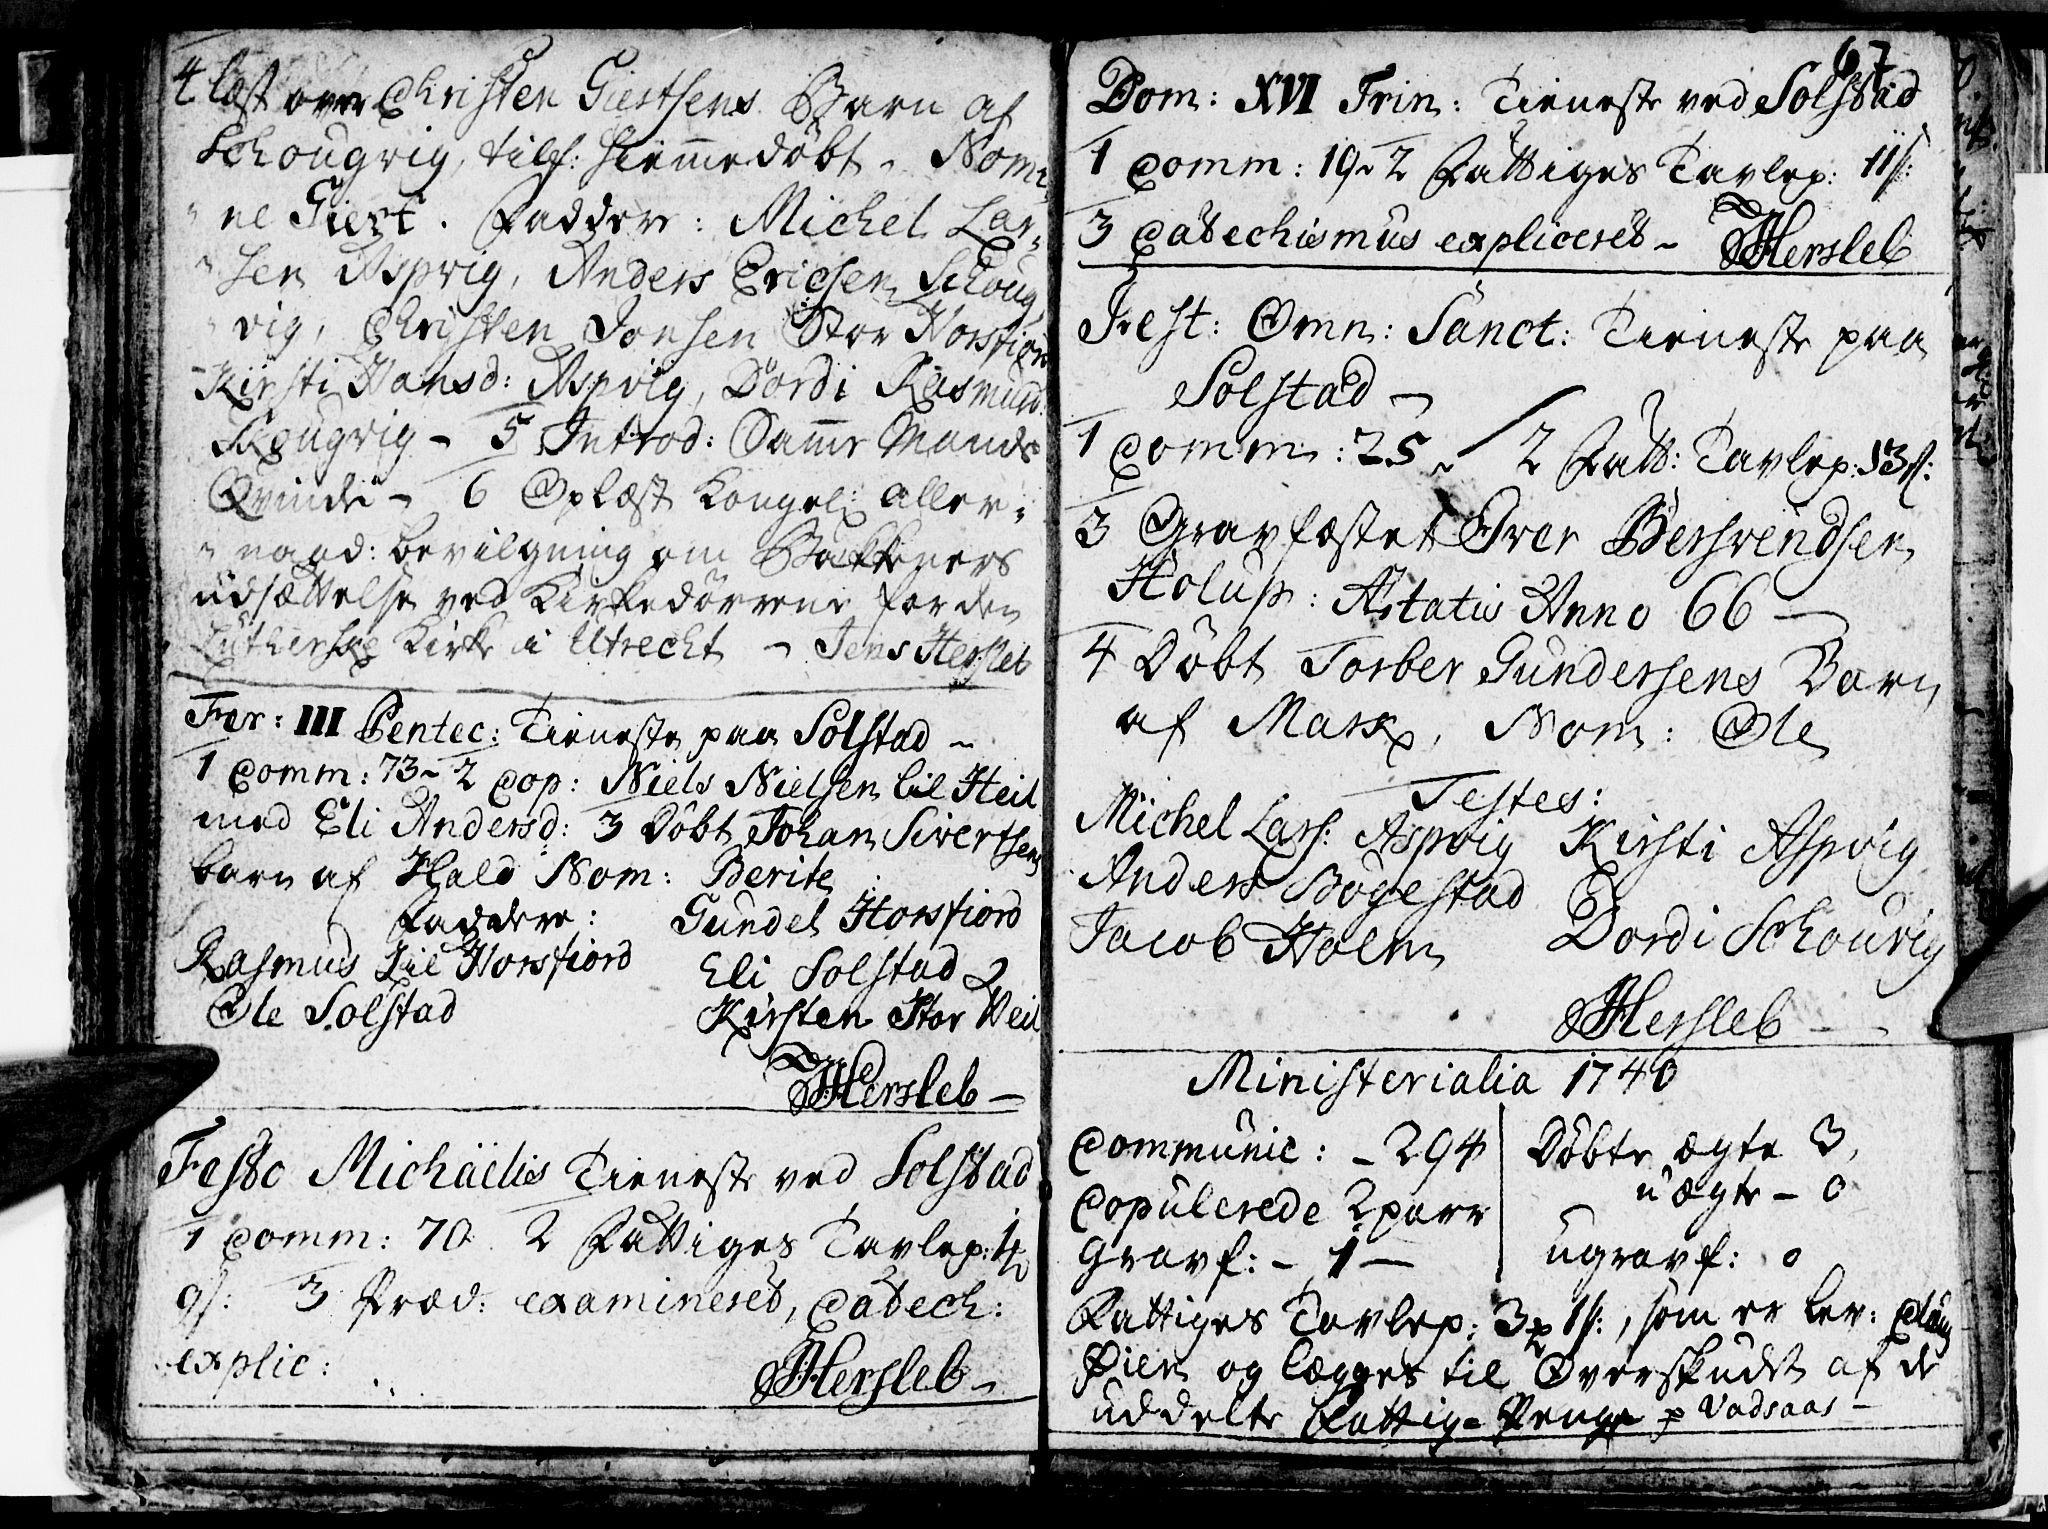 4 læst over Christen Giertsens Barn af
Schougvig, tilf: hiemmedöbt - Nomi-
ne Giert. Faddere: Michel Lar-
sen Aspvig, Anders Ericsen Schoug
vig, Christen Jonsen Stor Horsfiord
Kirsti Hansd: Aspvig, Dordi Rasmusd:
Skougvig - 5 Introd: Samme Mands
Qvinde - 6 Oplæst Kongel: aller-
naad: bevilgning om Bækkeners
udsættelse ved Kirkedörrene for den
Lutherske Kirke i Utrecht - Jens Hersleb
Fer: III Pentec: Tieneste paa Solstad -
1 Comm: 73 - 2 Cop: Niels Nielsen lil Heil
med Eli Andersd: 3 Döbt Johan Sivertsens
barn af Hald Nom: Berite
Faddere: Gundel Horsfiord
Rasmus Lil Horsfiord Eli Solstad
Ole Solstad Kirsten Stor Veil
JHersleb -
Festo Michaëlis Tieneste ved Solstad
1 Comm: 70. 2 Fattiges Tavlep:
9s: 3 Præd: examineret, Catech:
explic:
JHersleb -
67
Dom: XVI Trin: Tieneste ved Solstad
1 Comm: 19 - 2 Fattiges Tavlep: 11s:
3 Catechismus expliceret - JHersleb
Fest: Omn: Sanct: Tieneste paa
Solstad -
1 Comm: 25 - 2 Fatt: Tavlep: 13s:
3 Gravfæstet Iver Bersvendsen
Holup: Ætatis Anno 66 -
4 Döbt Torber Gundersens Barn
af Mark, Nom: Ole
Testes:
Michel Lars: Aspvig Kirsti Aspvig
Anders Bogestad
Jacob Holm Dordi Schouvig
JHersleb -
Ministerialia 1740
Communic: - 294 Döbte ægte 3,
Copulerede 2 parr uægte - 0
Gravf: - 1 - ugravf: 0
Fattiges Tavlep: 3 1s:, som er lev:
og lægges til Overskudet af de
uddelte Fattig-Penge p Vadsaas -